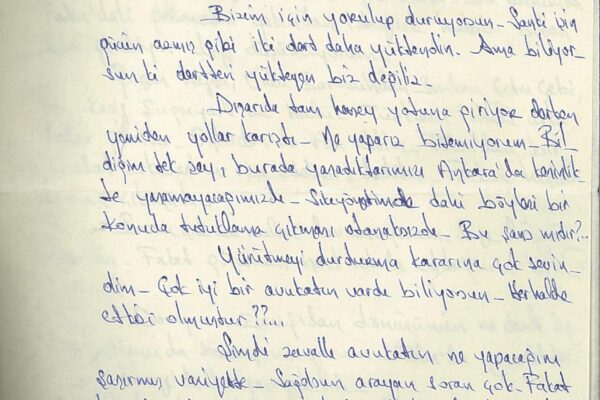 _Bizim için yorulup duruyorsun_ Sanki işin
gücün azmış gibi iki dert daha yüklendin. Ama biliyor_
sun ki dertleri yükleyen biz değiliz_
Dışarıda tam herşey yoluna giriyor derken
yeniden yollar karıştı_ Ne yaparız bilemiyorum_ Bil_
diğim tek şey, burada yaşadıklarımızı Ankara'da kesinlik_
le yaşamayacağımızdı_ dahi böylesi bir
konuda tutuklama çıkması olanaksızdı_ Bu şans mıdır?_
Yürütmeyi durdurma kararına çok sevin_
dim_ Çok iyi bir avukatın vardı biliyorsun_ Herhalde
etkisi olmuştur??!...
Şimdi zavallı avukatın ne yapacağını
şaşırmış vaziyette_ Sağolsun arayan soran çok_ Fakat